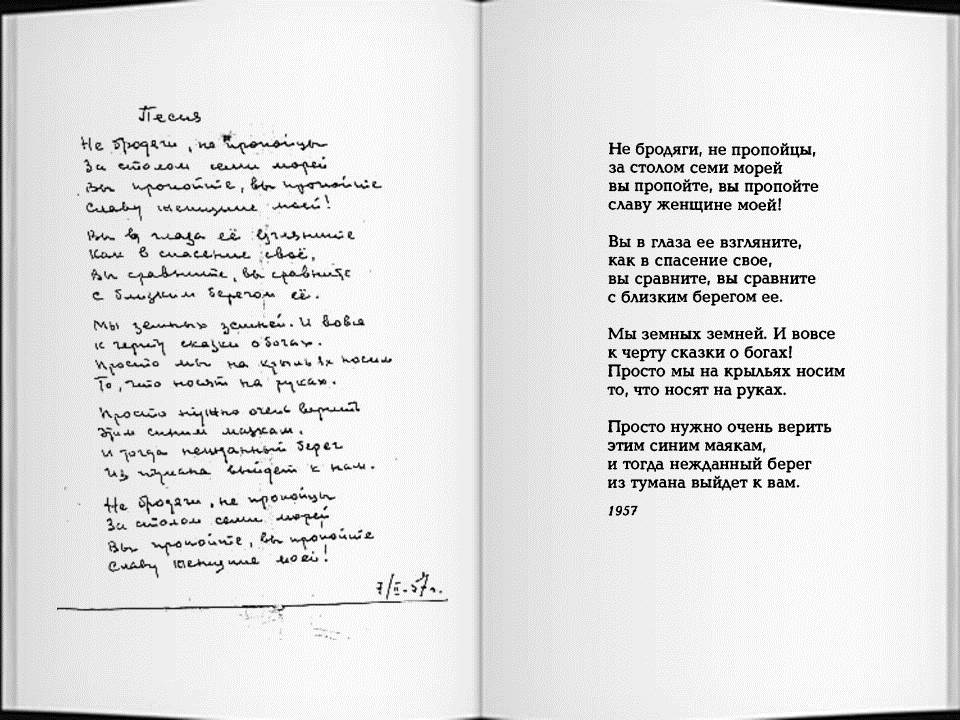 Песня
Не бродяги, не пропойцы
За столом семи морей
Вы пропойте, вы пропойте
Славу женщине моей!
Вы в глаза её взгляните
Как в спасение своё,
Вы сравните, вы сравните
С близким берегом её.
Мы земных земней. И вовсе
К черту сказки о богах.
Просто мы на крыльях носим
То, что носят на руках.
Просто нужно очень верить
Этим синим маякам.
И тогда нежданный берег
Из тумана выйдет к нам.
Не бродяги, не пропойцы
За столом семи морей
Вы пропойте, вы пропойте
Славу женщине моей!
7/II-57г.
Не бродяги, не пропойцы,
за столом семи морей
вы пропойте, вы пропойте
славу женщине моей!
Вы в глаза ее взгляните,
как в спасение свое,
вы сравните, вы сравните
с близким берегом ее.
Мы земных земней. И вовсе
к черту сказки о богах!
Просто мы на крыльях носим
то, что носят на руках.
Просто нужно очень верить
этим синим маякам,
и тогда нежданный берег
из тумана выйдет к вам.
1957